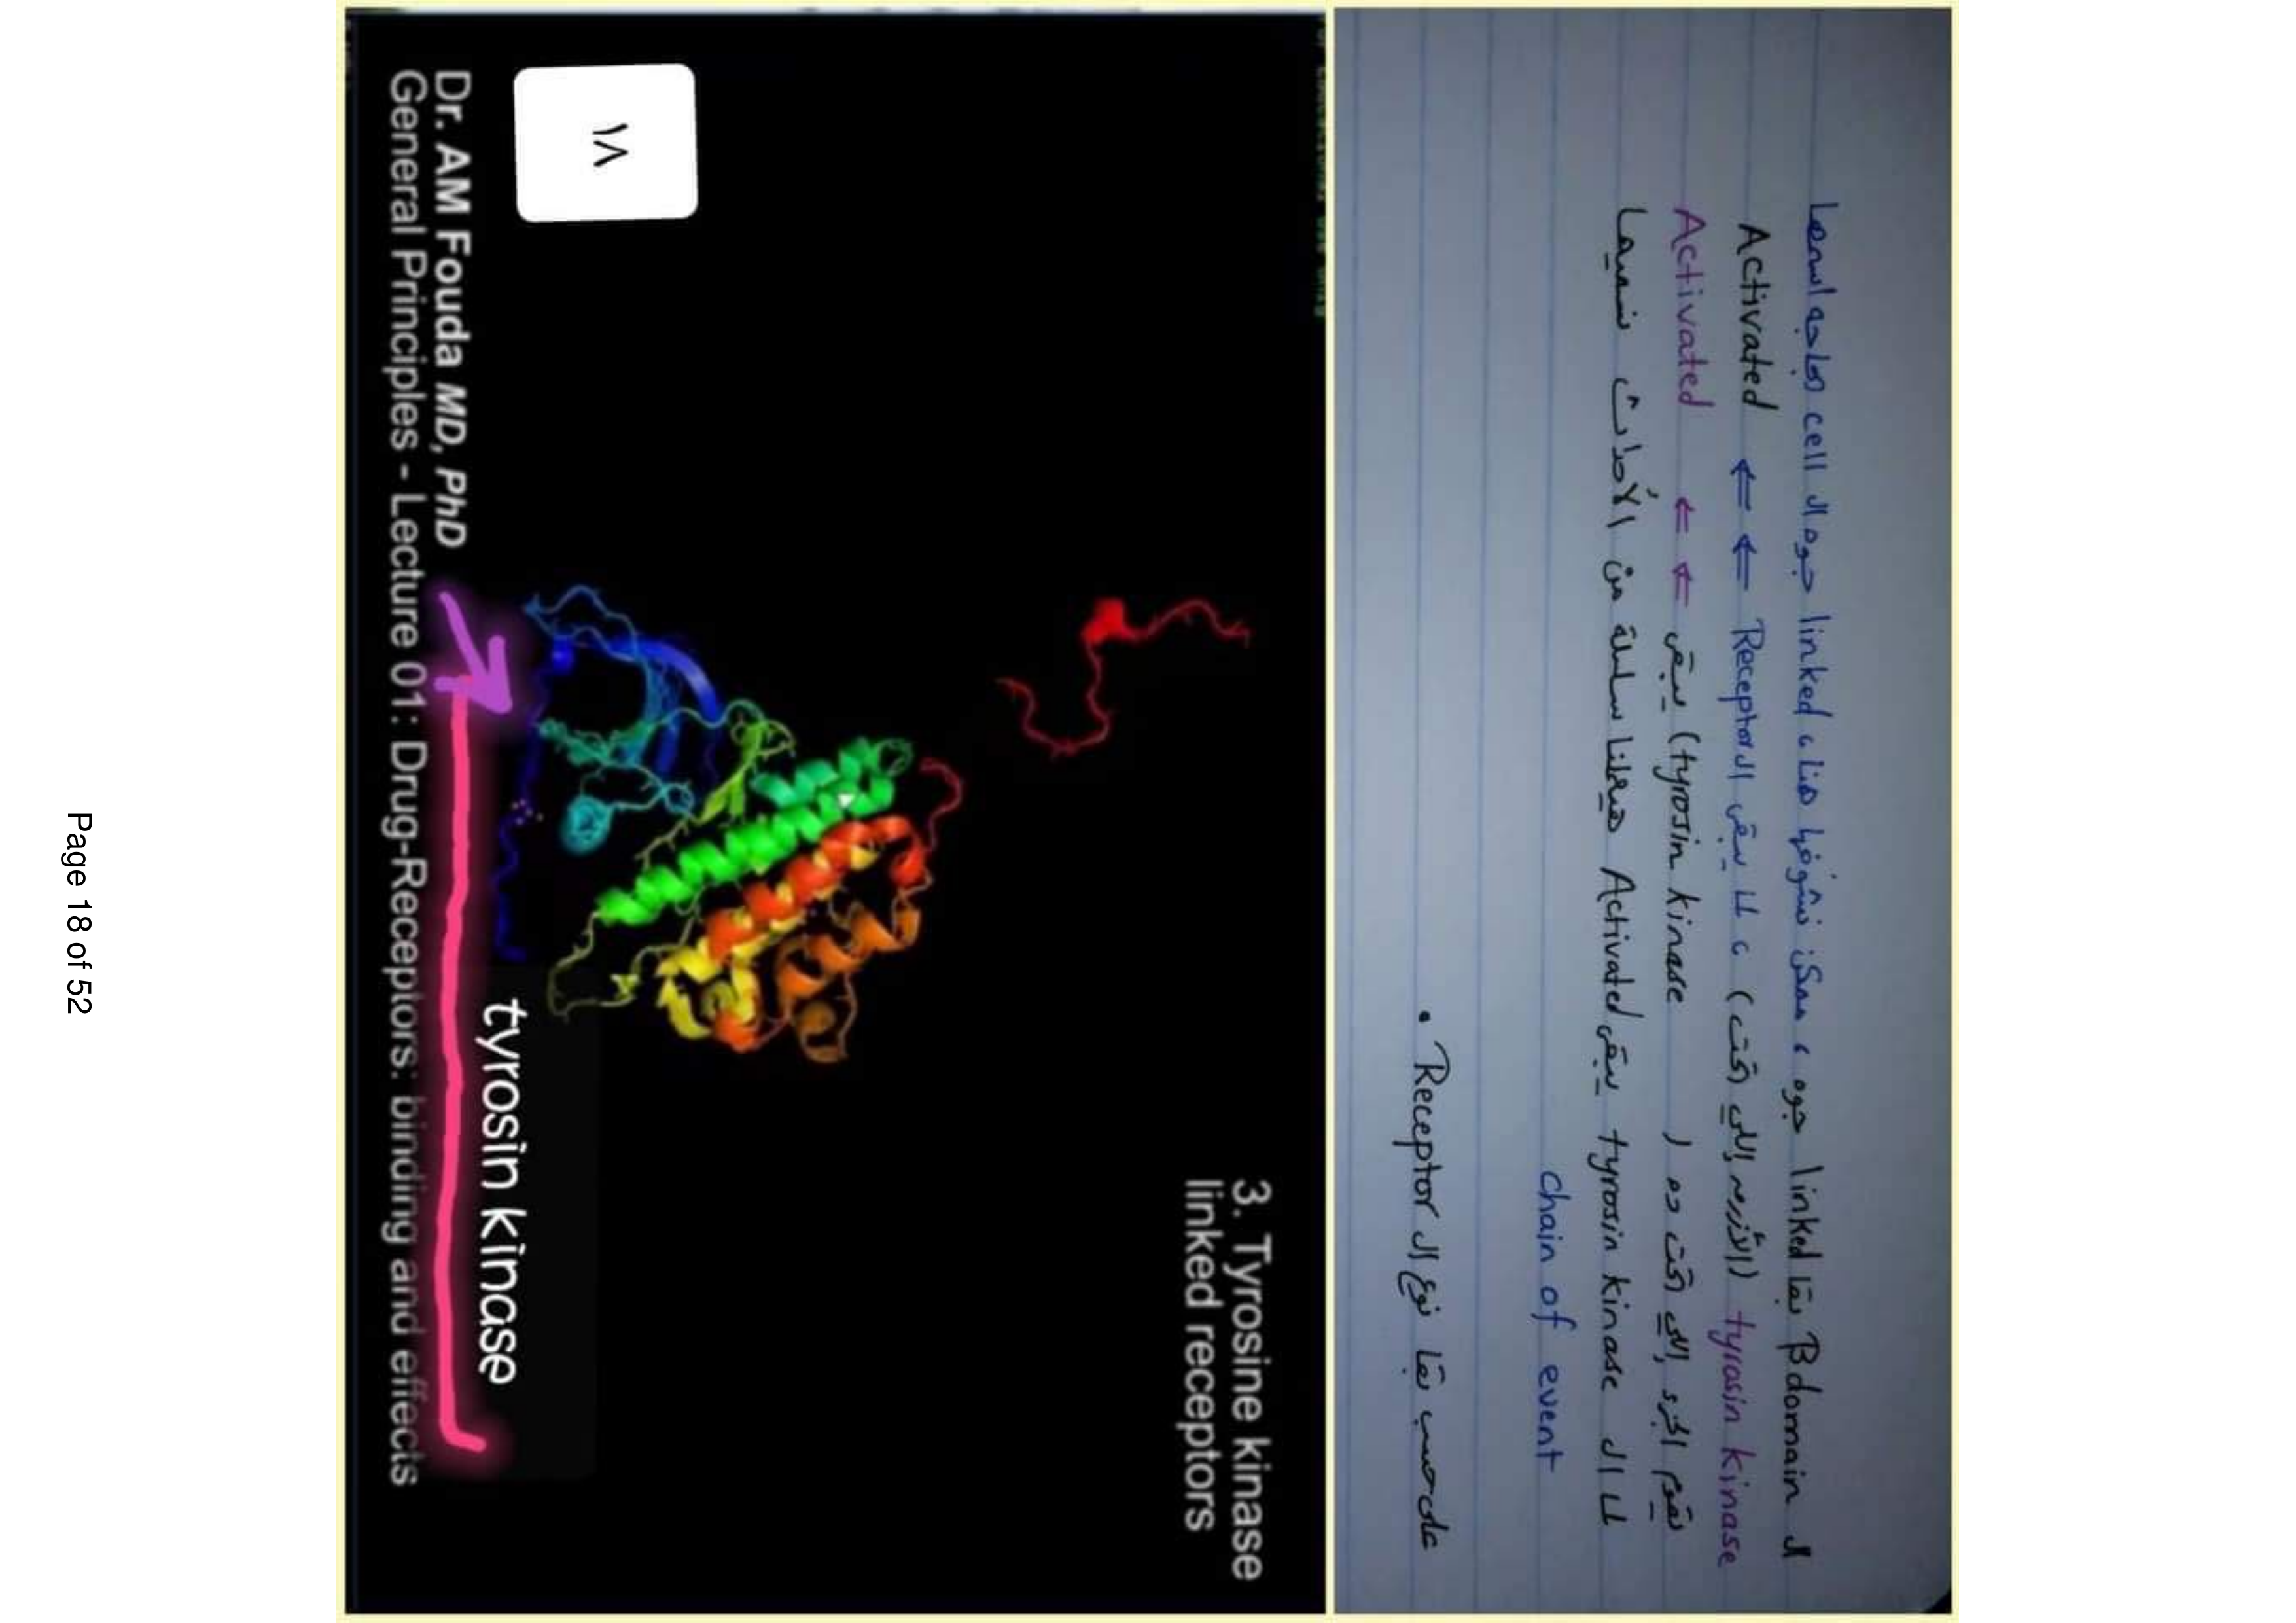 ال β domain بقا linked جوه ، ممكن نشوفها هنا ، linked جوه ال cell بحاجه اسمها
tyrosin kinase (الأزرق إللى تحت) ، لما يبقى ال Receptor ⇐ ⇐ Activated
تقوم الجزء إللى تحت ده ( tyrosin kinase) يبقى ⇐ ⇐ Activated
لما ال tyrosin kinase يبقى Activated هيعملنا سلسلة من الأحداث نسميها
chain of event
على حسب بقا نوع ال Receptor .
3. Tyrosine kinase
linked receptors
tyrosin kinase
١٨
Dr. AM Fouda MD, PhD
General Principles - Lecture 01: Drug-Receptors: binding and effects
Page 18 of 52